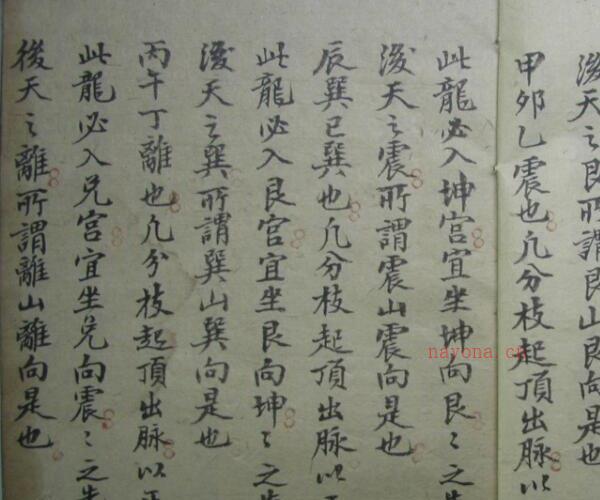 後天之艮所謂艮山艮向是也
甲夘乙震也凡分枝起頂出脉以
此龍必入坤宫宜坐坤向艮〻之先
後天之震所謂震山震向是也
辰巽巳巽也凡分枝起頂出脉以
此龍必入艮宫宜坐艮向坤〻之先
後天之巽所謂巽山巽向是也
丙午丁離也凡分枝起頂出脉以
此龍必入兑宫宜坐兑向震〻之先
後天之離所謂離山離向是也
nayona.cn